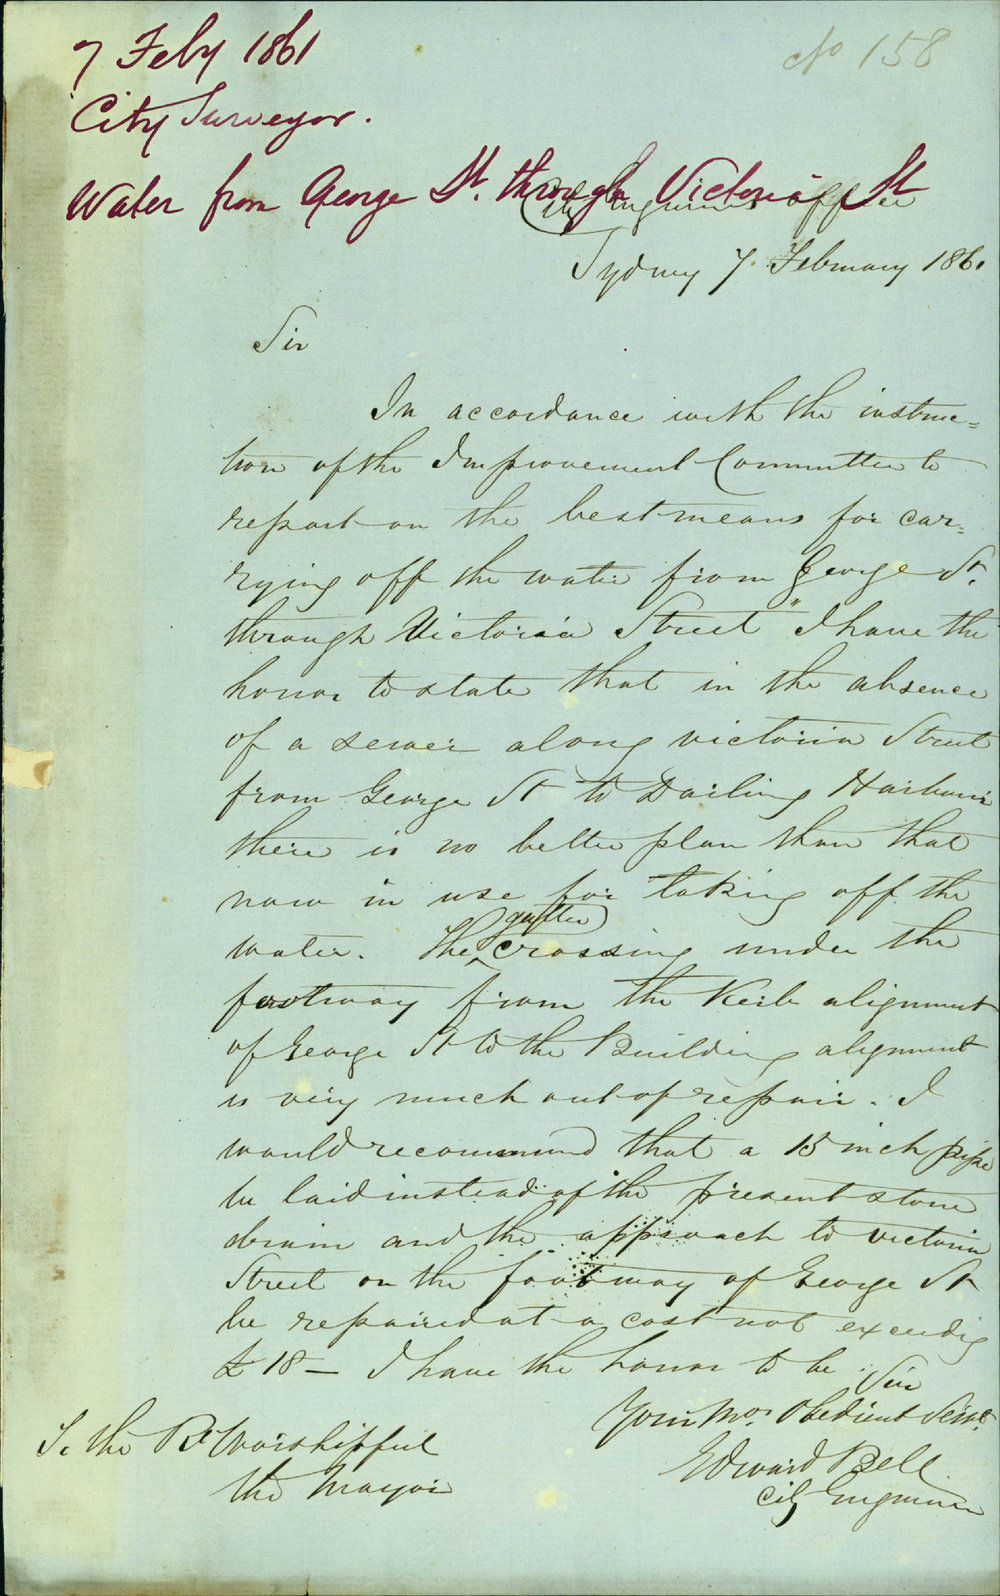 7 Feby 1861
No 158
City Surveyor.
Water from George St. through Victoria St
City Engineers Office
Sydney 7. February 1861
Sir
In accordance with the instruc=
tion of the Improvement Committee to
report on the best means for car=
rying off the water from George St.
through Victoria Street" I have the
honor to state that in the absence
of a sewer along Victoria Street
from George St to Darling Harbour
there is no better plan than that
now in use for taking off the
water. The gutter crossing under the
footway from the Kerb alignment
of George St to the Building alignment
is very much out of repair. I
would recommend that a 15 inch pipe
be laid instead of the present stone
drain and the approach to Victoria
Street on the footway of George St
be repaired at a cost not exceedig
£ 18 — I have the honor to be Sir
Your Mos. Obedient Servt.
To the Rt Worshipful
Edward Bell
the Mayor
City Engineer